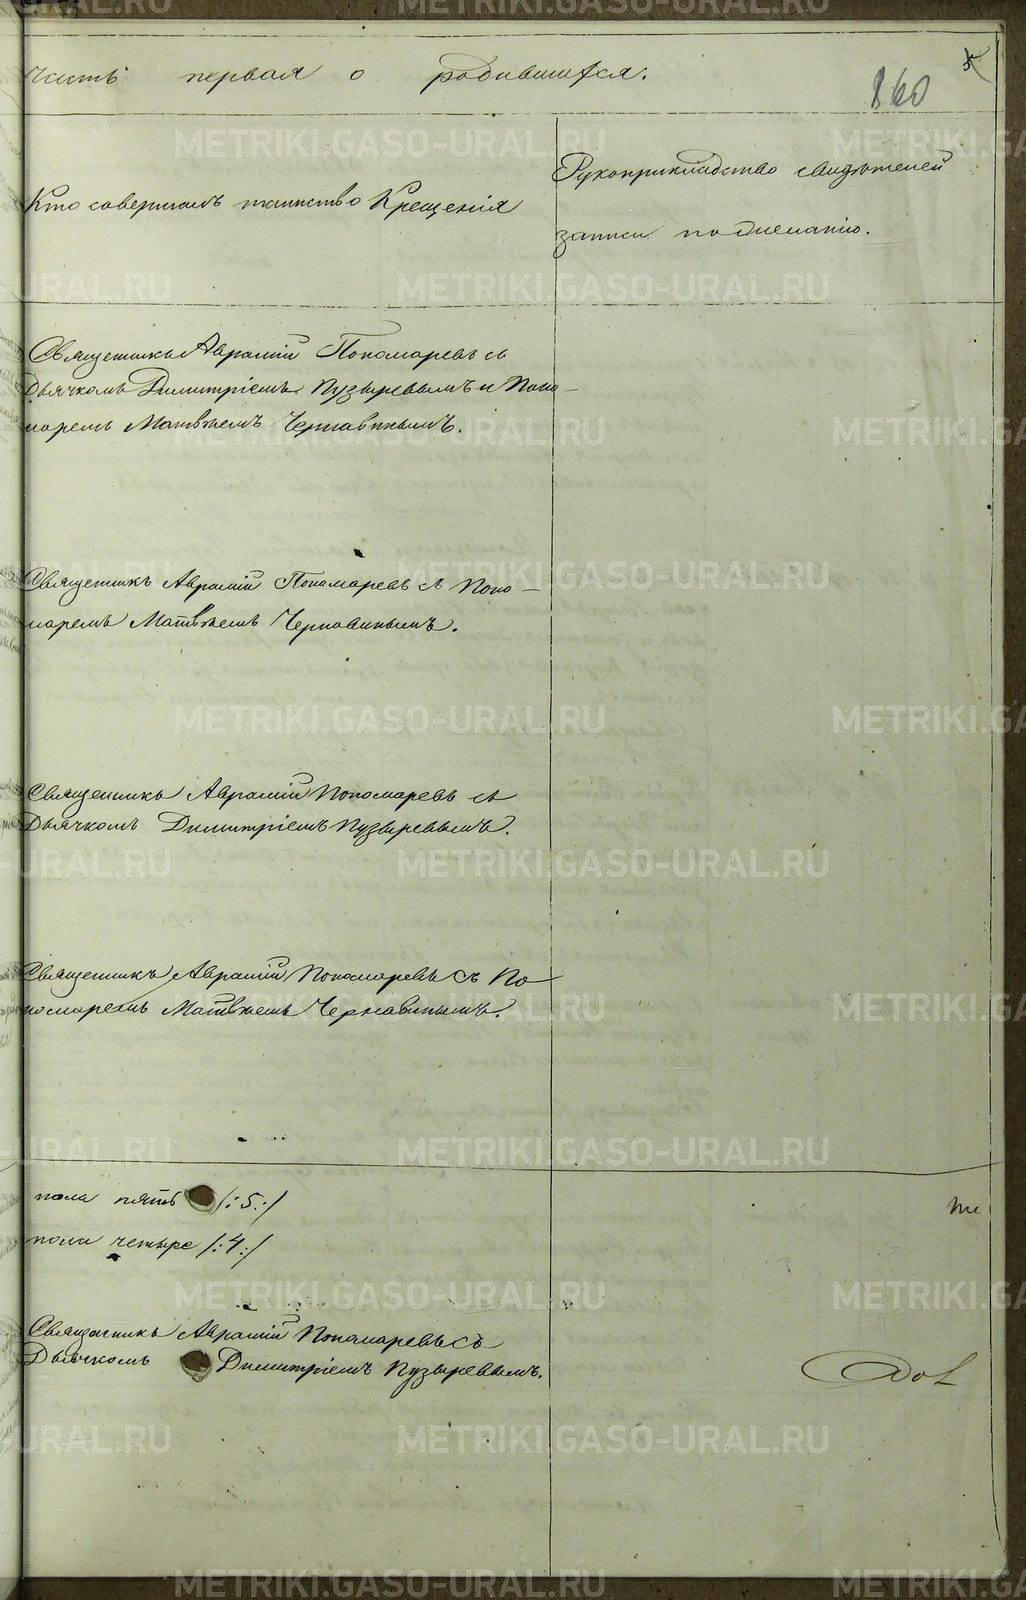 часть первая о родившихся.
5
860
Кто совершалъ таинство Крещенія
Рукоприкладство свидѣтелей
записи по желанію.
Священникъ Аврамій Пономаревъ съ
Дьячкомъ Димитріемъ Пузыревымъ и Поно-
маремъ Матвѣемъ Чернавинымъ.
Священникъ Аврамій Пономаревъ съ Поно-
маремъ Матвѣемъ Чернавинымъ.
Священникъ Аврамій Пономаревъ съ
Дьячкомъ Димитріемъ Пузыревымъ.
Священникъ Аврамій Пономаревъ съ По-
номаремъ Матвѣемъ Чернавинымъ.
пола пять /:5:/
пола четыре /:4:/
Священникъ Аврамій Пономаревъ съ
Дьячкомъ Димитріемъ Пузыревымъ.
METRIKI.GASO-URAL.RU